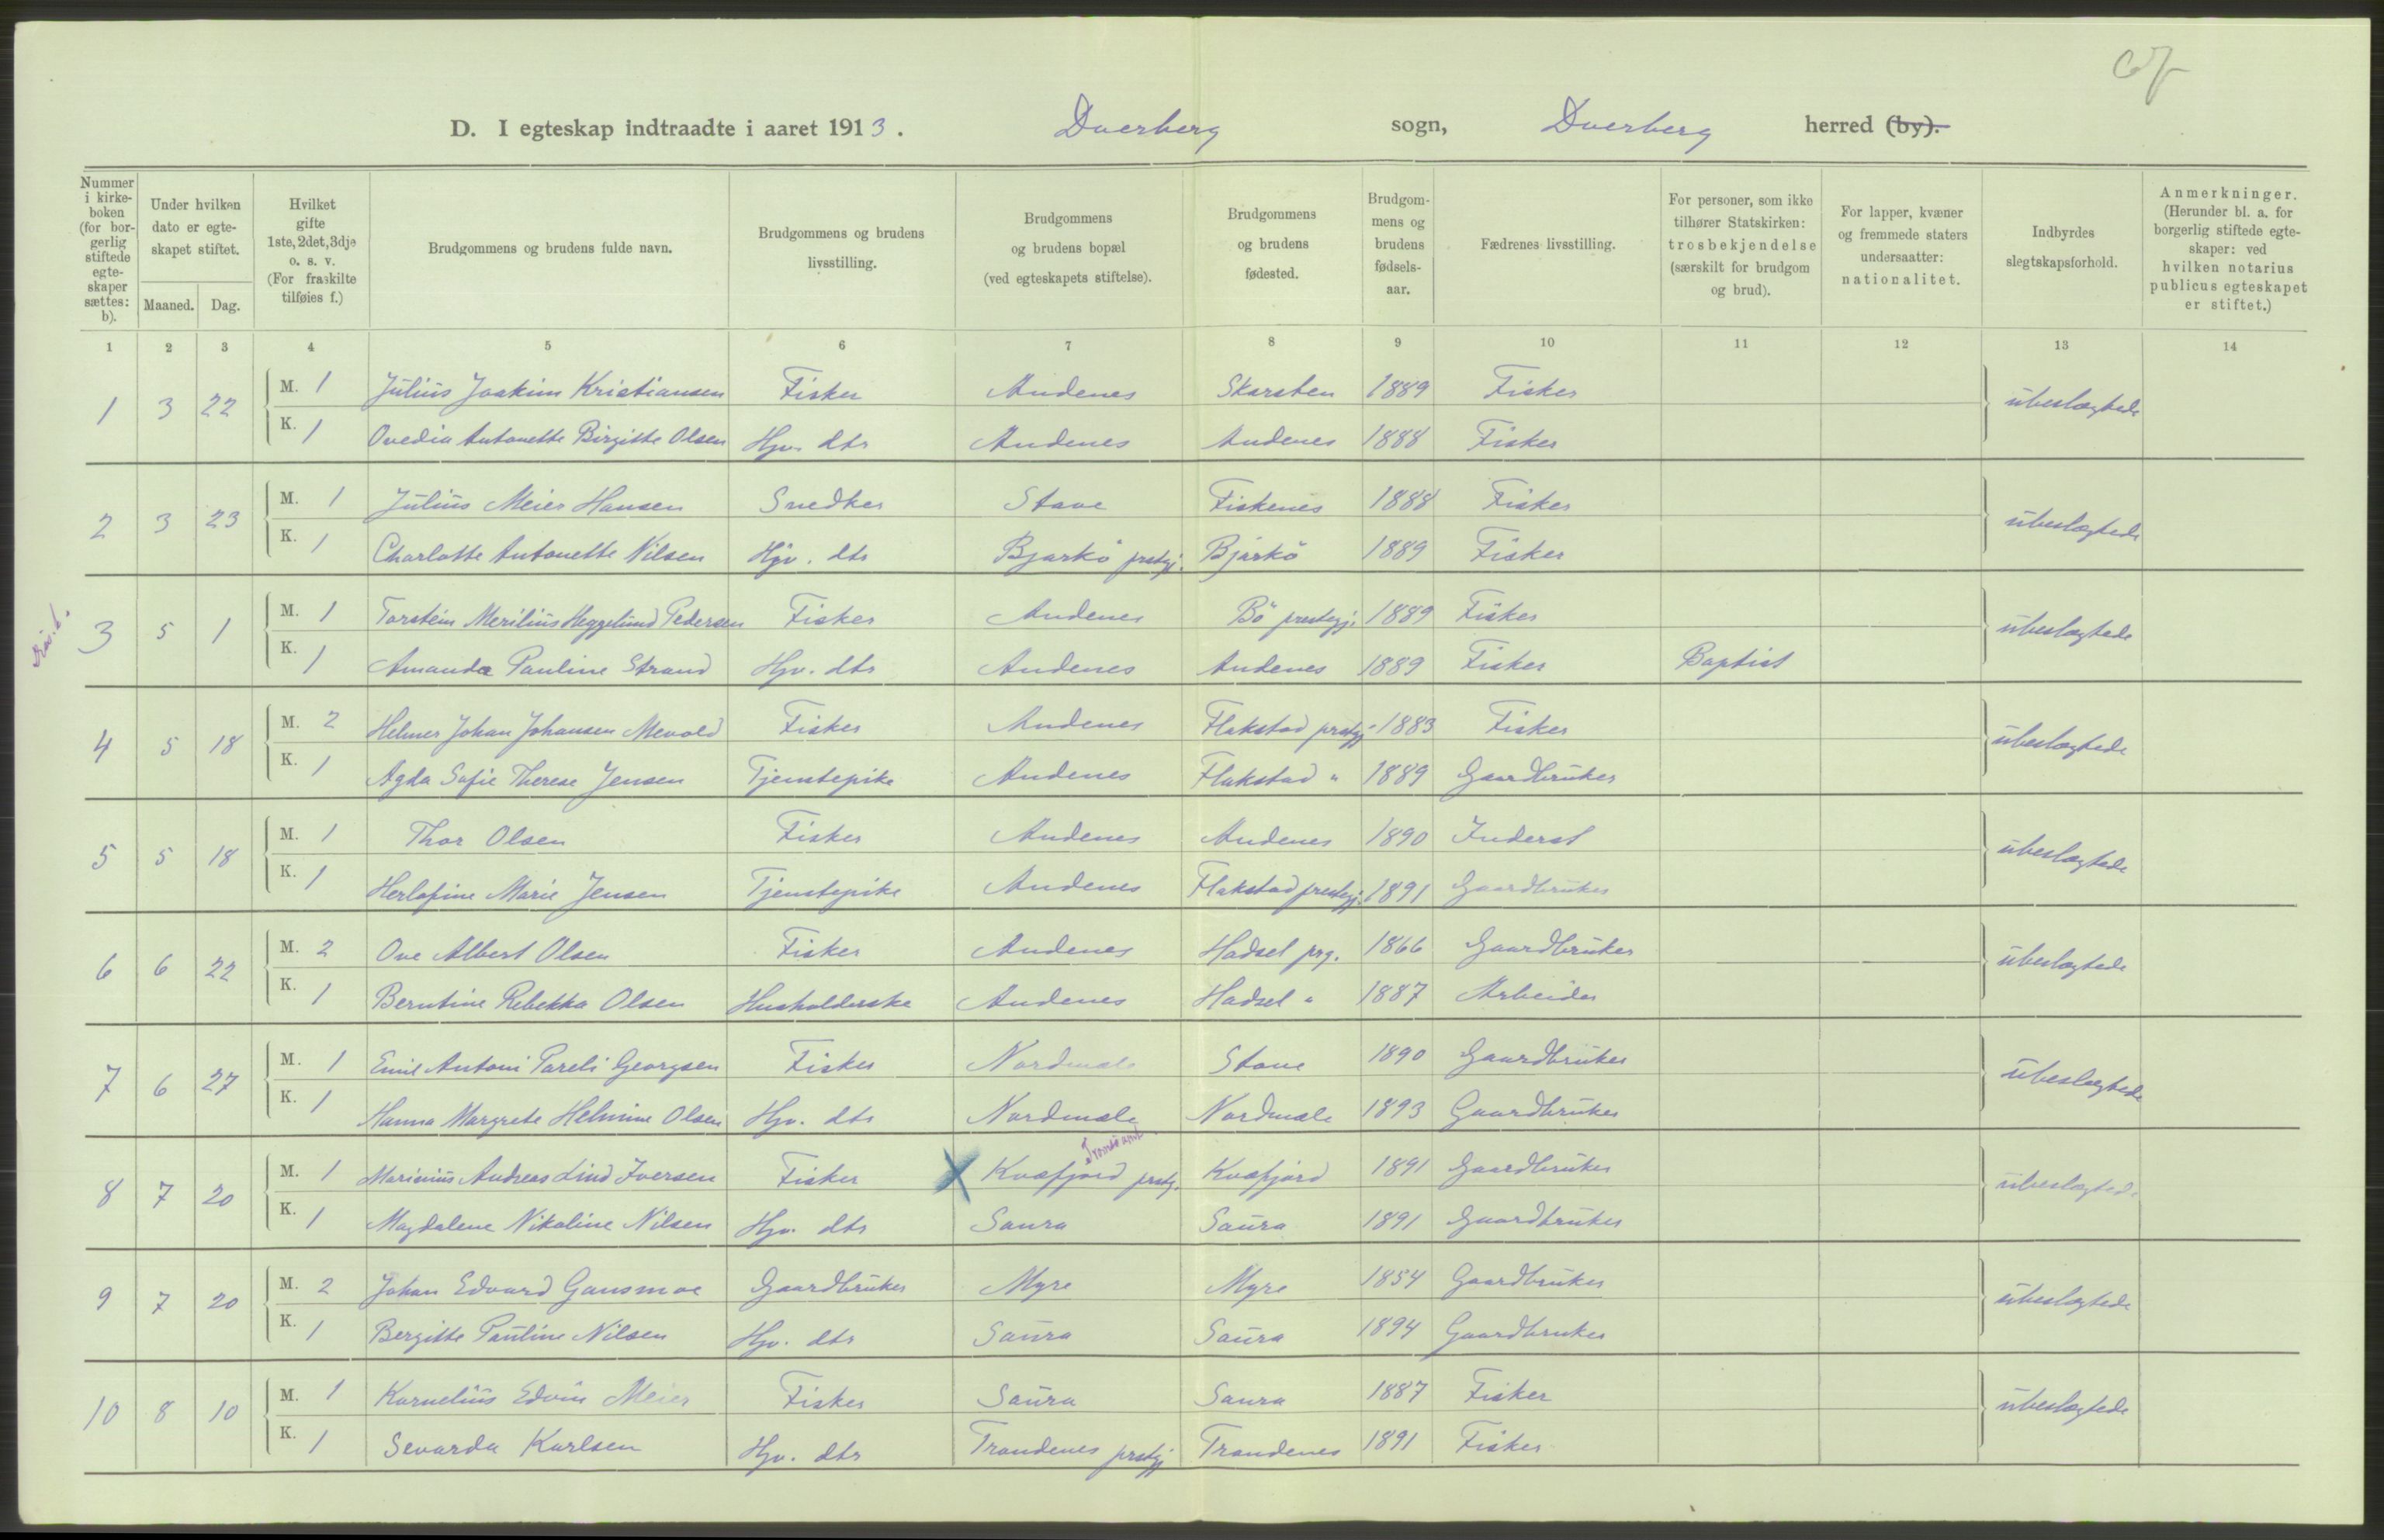 D. I egteskap indtraadte i aaret 1913. Dverberg sogn, Dverberg herred (by).
Nummer i kirkeboken (for borgerlig stiftede egteskaper sættes: b).
Under hvilken dato er egteskapet stiftet.
Maaned. Dag.
Hvilket gifte 1ste, 2det, 3dje o. s. v. (For fraskilte tilføies f.)
Brudgommens og brudens fulde navn.
Brudgommens og brudens livsstilling.
Brudgommens og brudens bopæl (ved egteskapets stiftelse).
Brudgommens og brudens fødested.
Brudgommens og brudens fødselsaar.
Fædrenes livsstilling.
For personer, som ikke tilhører Statskirken: trosbekjendelse (særskilt for brudgom og brud).
For lapper, kvæner og fremmede staters undersaatter: nationalitet.
Indbyrdes slegtskapsforhold.
Anmerkninger. (Herunder bl. a. for borgerlig stiftede egteskaper: ved hvilken notarius publicus egteskapet er stiftet.)
1 2 3 4 5 6 7 8 9 10 11 12 13 14
1 3 22 M. 1 Julius Joakim Kristiansen Fisker Andenes Skarsten 1889 Fisker ubeslægtede
K. 1 Ovedia Antonette Birgitte Olsen Hjv. dtr Andenes Andenes 1888 Fisker
2 3 23 M. 1 Julius Meier Hansen Snedker Stave Fiskenes 1888 Fisker ubeslægtede
K. 1 Charlotte Antonette Nilsen Hjv. dtr Bjarkö prstgj. Bjarkö 1889 Fisker
3 5 1 M. 1 Torstein Merilius Heggelund Pedersen Fisker Andenes Bö prestegj. 1889 Fisker ubeslægtede
K. 1 Amanda Pauline Strand Hjv. dtr Andenes Andenes 1889 Fisker Baptist
4 5 18 M. 2 Helmer Johan Johansen Mevold Fisker Andenes Flakstad prstgj. 1883 Fisker ubeslægtede
K. 1 Agda Sofie Therese Jensen Tjenstepike Andenes Flakstad " 1889 Gaardbruker
5 5 18 M. 1 Thor Olsen Fisker Andenes Andenes 1890 Inderst ubeslægtede
K. 1 Herlofine Marie Jensen Tjenstepike Andenes Flakstad prestegj. 1891 Gaardbruker
6 6 22 M. 2 Ove Albert Olsen Fisker Andenes Hadsel prg. 1866 Gaardbruker ubeslægtede
K. 1 Berntine Rebekka Olsen Husholderske Andenes Hadsel " 1887 Arbeider
7 6 27 M. 1 Emil Antoni Pareli Georgsen Fisker Nordmele Stave 1890 Gaardbruker ubeslægtede
K. 1 Hanna Margrete Helmine Olsen Hjv. dtr Nordmele Nordmele 1893 Gaardbruker
Tromsö amt
8 7 20 M. 1 Marinius Andreas Lind Iversen Fisker X Kvæfjord prstg. Kvæfjord 1891 Gaardbruker ubeslægtede
K. 1 Magdalene Nikoline Nilsen Hjv. dtr Saura Saura 1891 Gaardbruker
9 7 20 M. 2 Johan Edvard Gansmoe Gaardbruker Myre Myre 1854 Gaardbruker ubeslægtede
K. 1 Bergitte Pauline Nilsen Hjv. dtr Saura Saura 1894 Gaardbruker
10 8 10 M. 1 Kornelius Edvin Meier Fisker Saura Saura 1887 Fisker ubeslægtede
K. 1 Sevarda Karlsen Hjv. dtr Trondenes prstgj Trondenes 1891 Fisker